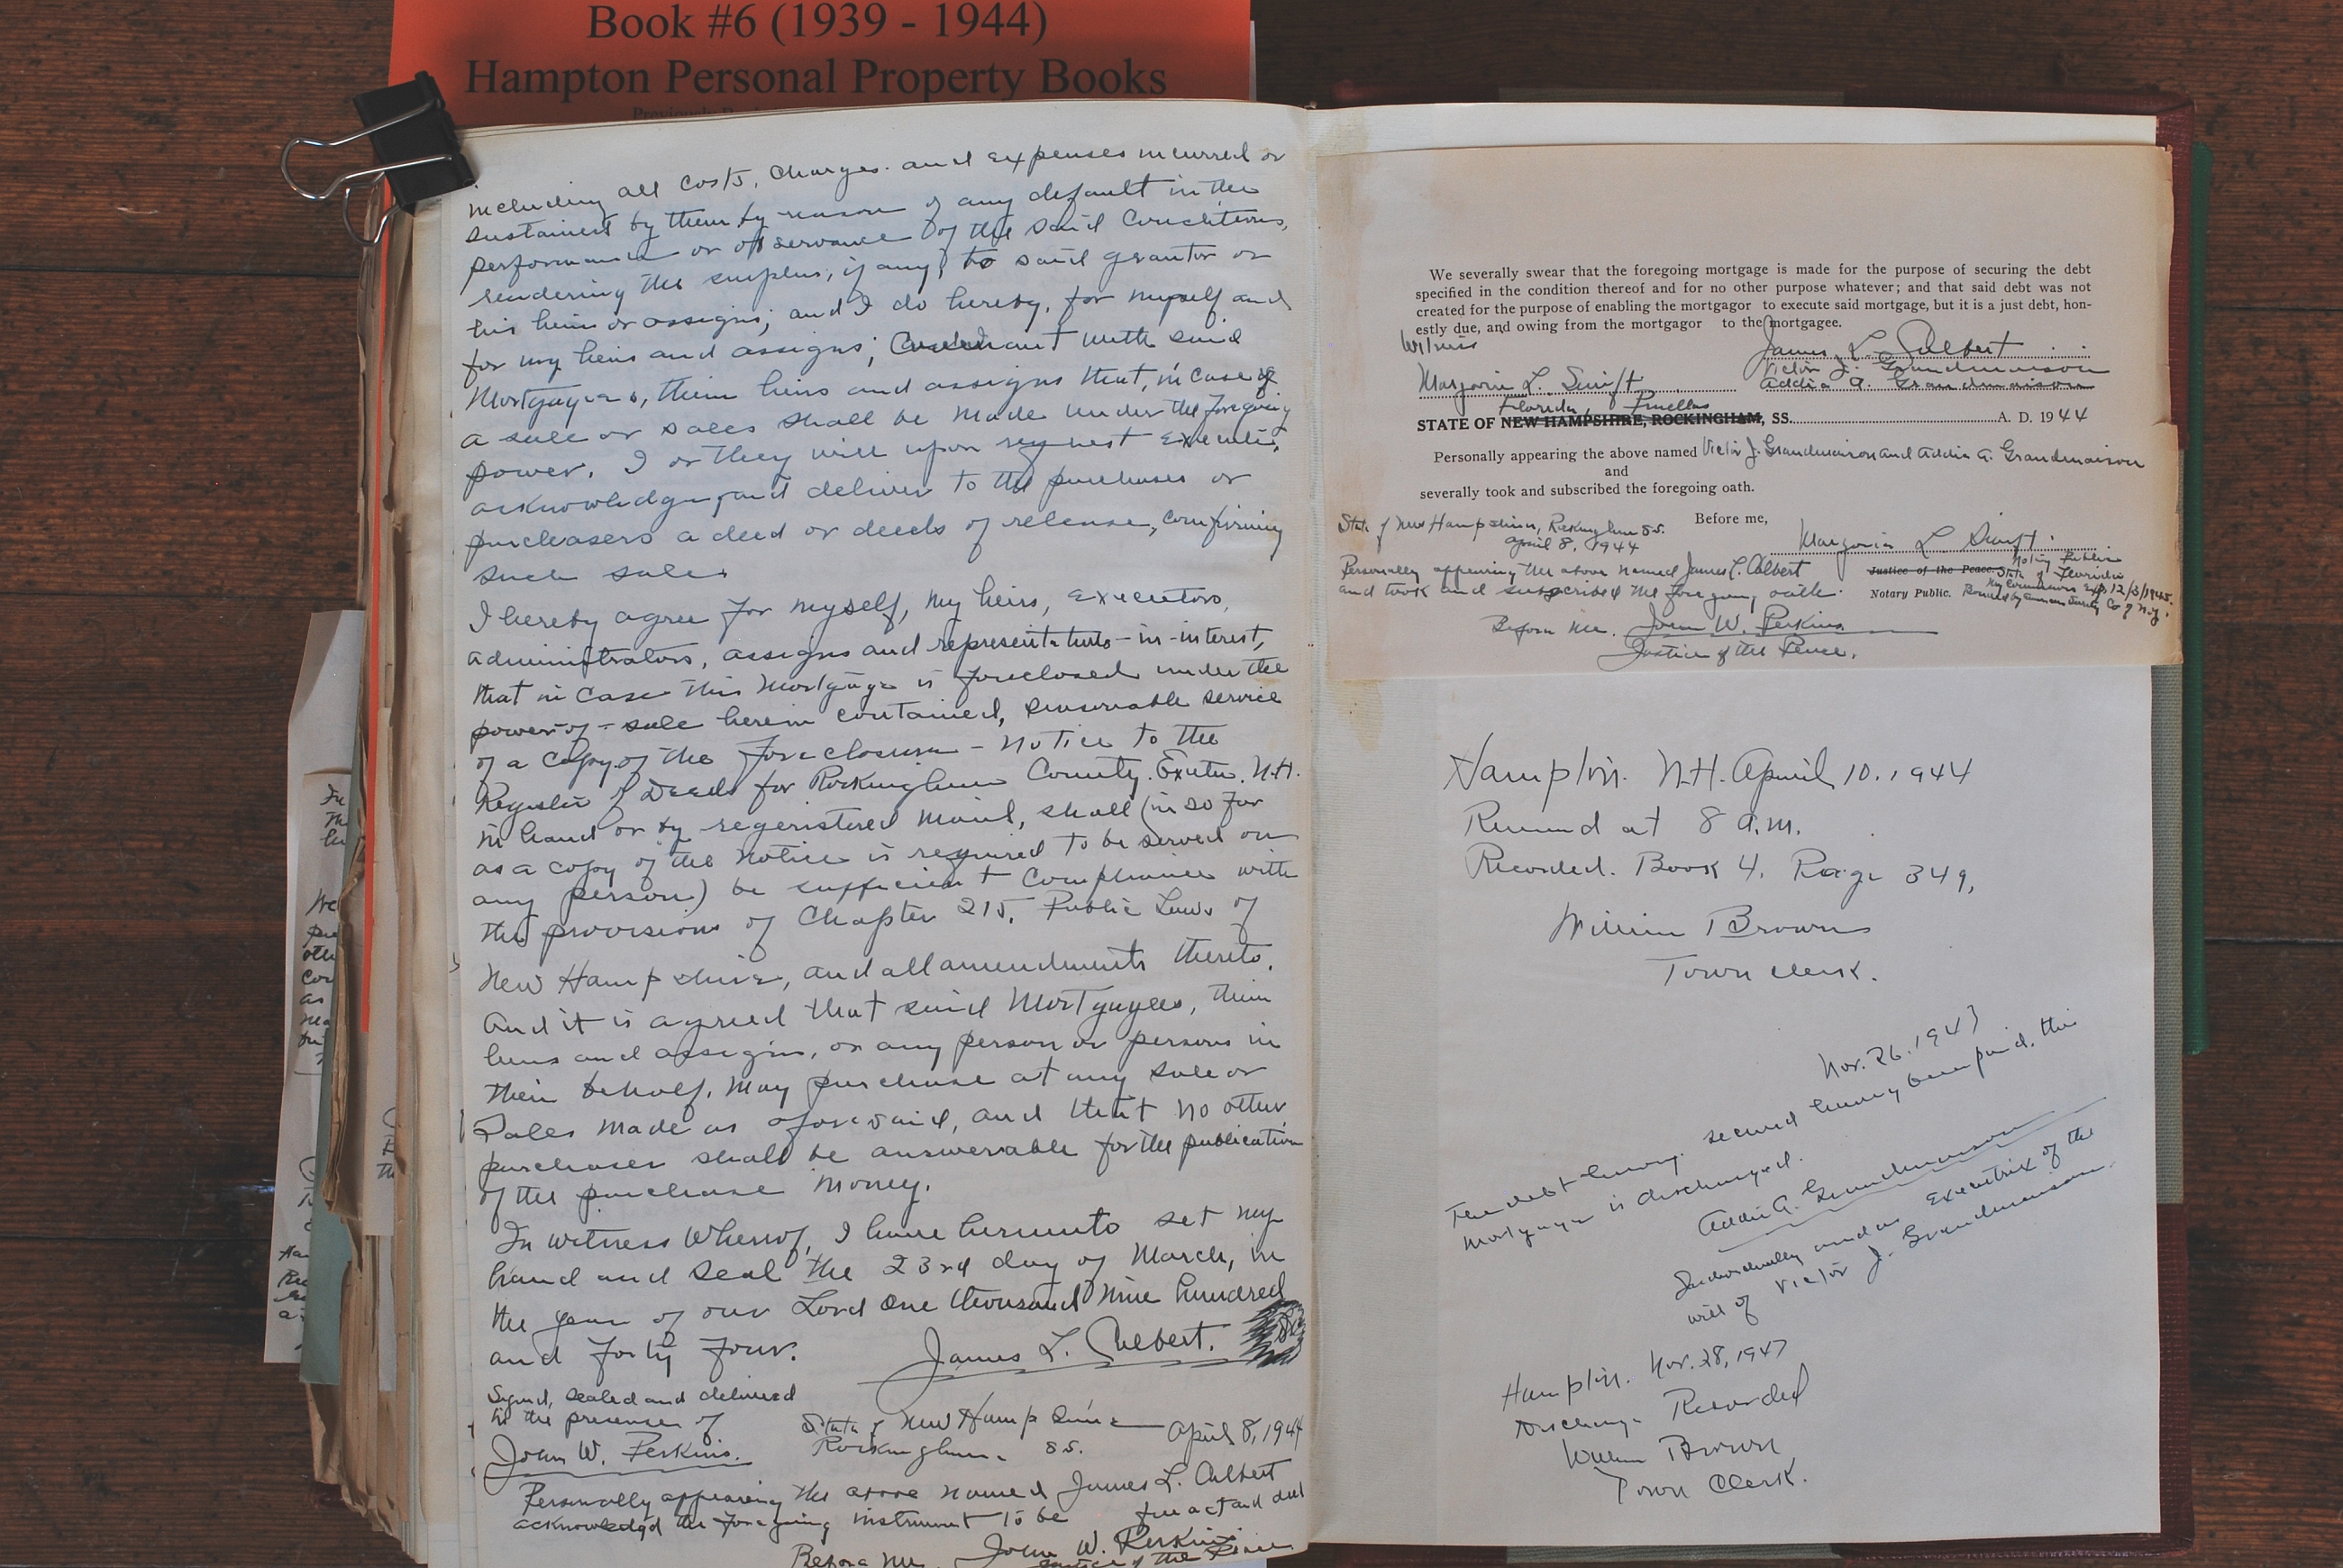 Book #6 (1939 - 1944)
Hampton Personal Property Books
including all costs, charges and expenses incurred or
sustained by them by reason of any default in the
performance or observance of the said conditions,
rendering the surplus, if any, to said grantor or
his heirs or assigns; and I do hereby, for myself and
for my heirs and assigns; Covenant with said
Mortgagees, their heirs and assigns that, in case of
a sale or sales shall be made under the foregoing
power. I or they will upon request execute,
acknowledge, and deliver to the purchaser or
purchasers a deed or deeds of release, confirming
such sale.
I hereby agree for myself, my heirs, executors,
administrators, assigns and representatives-in-interest,
that in case this mortgage is foreclosed under the
power-of-sale herein contained, reasonable service
of a copy of the foreclosure-notice to the
Register of Deeds for Rockingham County. Exeter. N.H.
in hand or by regeristered mail, shall (in so far
as a copy of the notice is required to be served on
any person) be sufficient compliance with
the provisions of Chapter 215, Public Laws of
New Hampshire, and all amendments thereto.
And it is agreed that said Mortgagees, their
heirs and assigns, or any person or persons in
their behalf, may purchase at any sale or
sales made as aforesaid, and that no other
purchaser shall be answerable for the publication
of the purchase money.
In witness Whereof, I have hereunto set my
hand and seal the 23rd day of March, in
the year of our Lord One thousand Nine hundred
and forty four.
James L. Culbert.
Signed, sealed and delivered
in the presence of
John W. Perkins.
State of New Hampshire April 8, 1944
Rockingham. SS.
Personally appearing the above named James L. Culbert
acknowledged the foregoing instrument to be free act and deed
Before me. John W. Perkins
Justice of the Peace
We severally swear that the foregoing mortgage is made for the purpose of securing the debt
specified in the condition thereof and for no other purpose whatever; and that said debt was not
created for the purpose of enabling the mortgagor to execute said mortgage, but it is a just debt, hon-
estly due, and owing from the mortgagor to the mortgagee.
Witness
James L. Culbert
Victor J. Grandmaison
Marjorie L. Swift
Addie A. Grandmaison
Florida, Pinellas
STATE OF NEW HAMPSHIRE, ROCKINGHAM, SS. A. D. 1944
Personally appearing the above named Victor J. Grandmaison and Addie A. Grandmaison
and
severally took and subscribed the foregoing oath.
Before me,
Marjorie L. Swift.
Justice of the Peace.
Notary Public
State of Florida
Notary Public.
My Commission Exp. 12/3/1945.
Bonded by American Surety Co of N.Y.
State of New Hampshire, Rockingham SS.
April 8, 1944
Personally appearing the above named James L. Culbert
and took and suscribed the foregoing oath.
Before me. John W. Perkins
Justice of the Peace.
Hampton. N.H. April 10. 1944
Received at 8 A.M.
Recorded. Book 4. Page 349,
William Brown
Town Clerk.
Nov. 26. 1947
The debt hereby secured having been paid, this
mortgage is discharged.
Addie A. Grandmaison
Individually and as Executrix of the
will of Victor J. Grandmaison
Hampton. Nov. 28, 1947
Discharge Recorded
William Brown
Town Clerk.